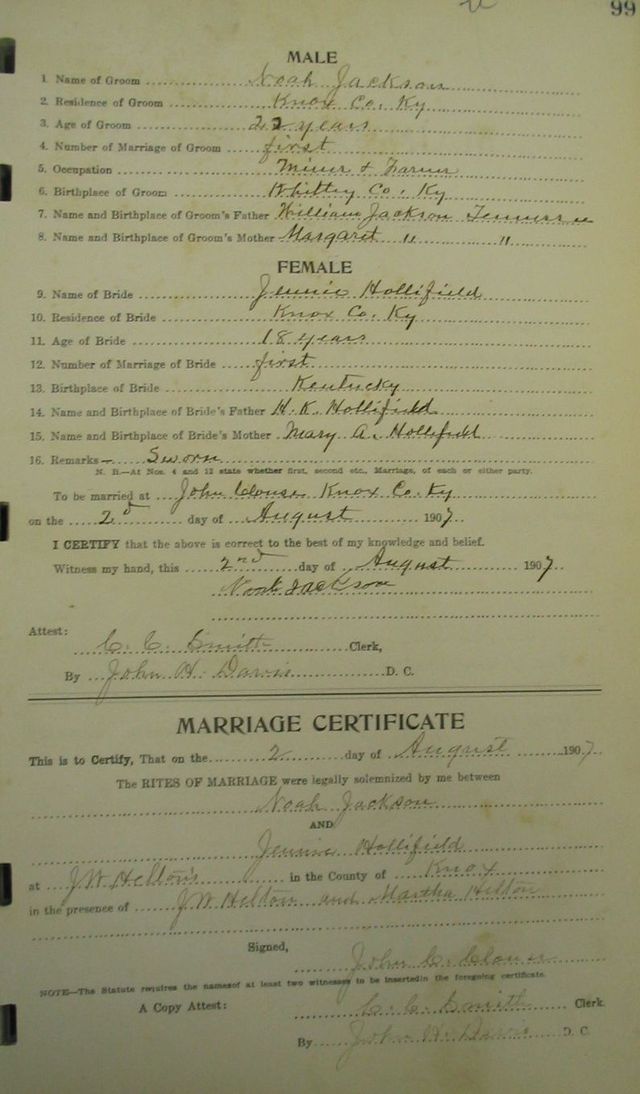 99
MALE
1. Name of Groom Noah Jackson
2. Residence of Groom Knox Co. Ky
3. Age of Groom 22 years
4. Number of Marriage of Groom first
5. Occupation Miner & Farmer
6. Birthplace of Groom Whitley Co. Ky
7. Name and Birthplace of Groom's Father William Jackson Tennessee
8. Name and Birthplace of Groom's Mother Margaret " "
FEMALE
9. Name of Bride Jennie Hollifield
10. Residence of Bride Knox Co. Ky
11. Age of Bride 18 years
12. Number of Marriage of Bride first
13. Birthplace of Bride Kentucky
14. Name and Birthplace of Bride's Father H. K. Hollifield
15. Name and Birthplace of Bride's Mother Mary A. Hollifield
16. Remarks— Sworn
N. B.—At Nos. 4 and 12 state whether first, second etc., Marriage, of each or either party.
To be married at John Clouse Knox Co. Ky
on the 2d day of August 1907.
I CERTIFY that the above is correct to the best of my knowledge and belief.
Witness my hand, this 2nd day of August 1907
Noah Jackson
Attest:
C. C. Smith Clerk,
By John H. Davis D. C.
MARRIAGE CERTIFICATE
This is to Certify, That on the 2 day of August 1907
The RITES OF MARRIAGE were legally solemnized by me between
Noah Jackson
AND
Jennie Hollifield
at JW Helton's in the County of Knox
in the presence of JW Helton and Martha Helton
Signed,
John C. Clouse
NOTE—The Statute requires the namesof at least two witnesses to be insertedin the foregoing certificate.
A Copy Attest: C. C. Smith Clerk.
By John H. Davis D. C.